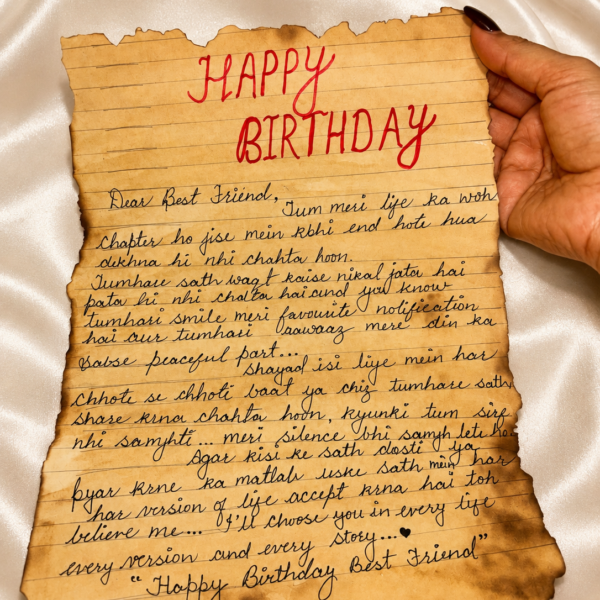 HAPPY
BIRTHDAY
Dear Best Friend,
Tum meri life ka woh
chapter ho jise mein kbhi end hote hua
dekhna hi nhi chahta hoon.
Tumhare sath waqt kaise nikal jata hai
pata hi nhi chalta hai and ya know
tumhari smile meri favourite notification
hai aur tumhari aawaaz mere din ka
sabse peaceful part...
Shayad isi liye mein har
chhote se chhoti baat ya chiz tumhare sath
share krna chahta hoon, kyunki tum sirf
nhi samjhti... meri silence bhi samjh leti ho
Agar kisi ke sath dosti ya
pyar krne ka matlab uske sath mein har
har version of life accept krna hai toh
believe me... I'll choose you in every life
every version and every story...♥
"Happy Birthday Best Friend"